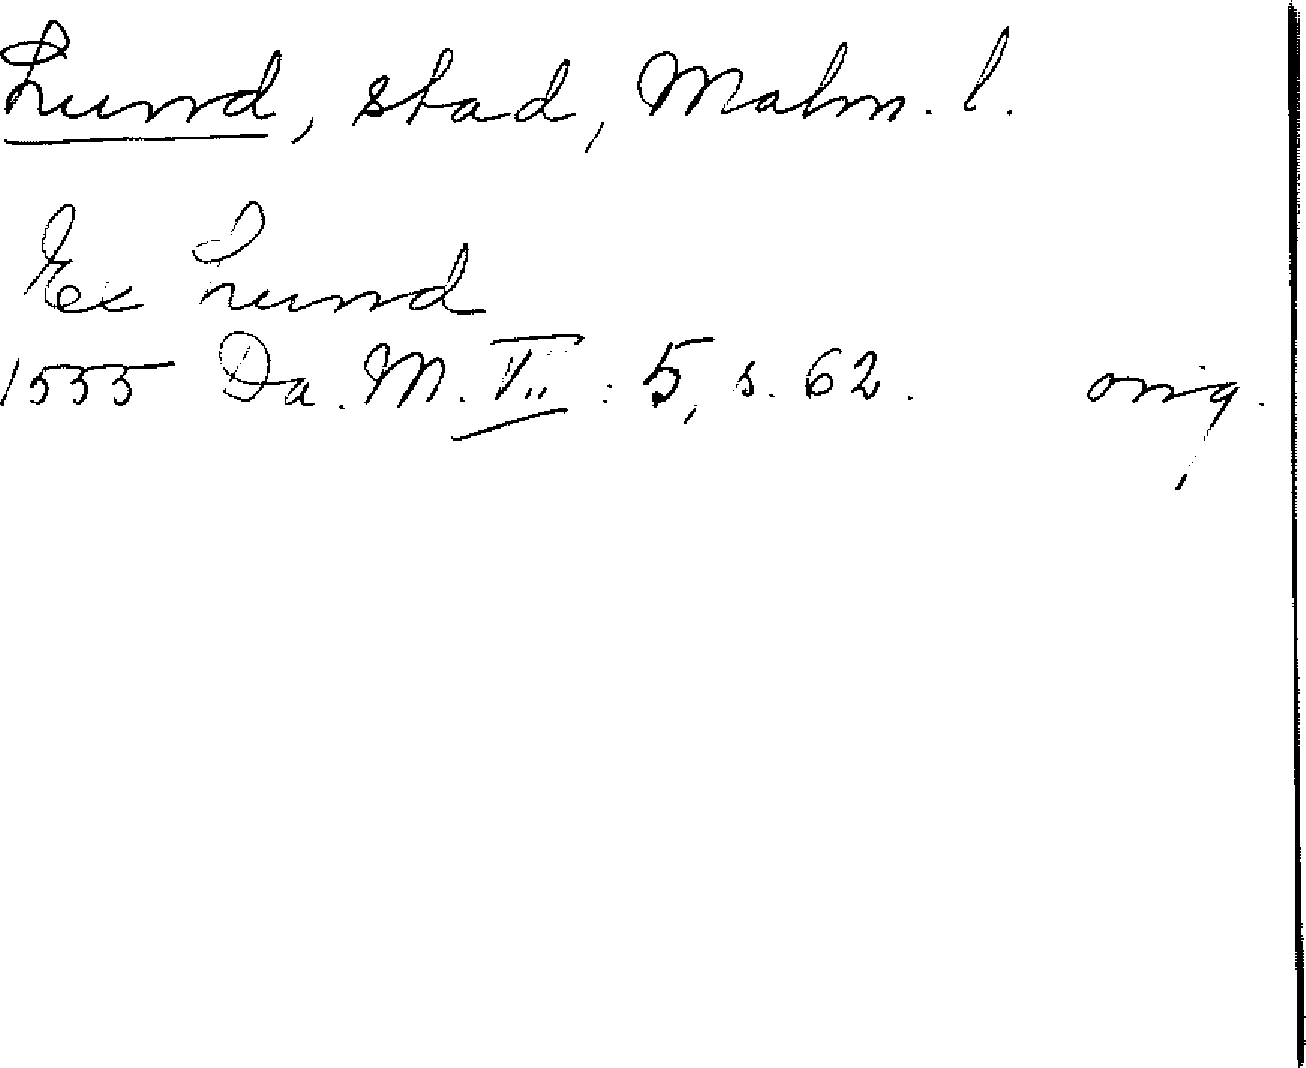 Lund, stad, Malm. l.
Ex Lund
1535 Da. M. V: 5, s. 62. orig.